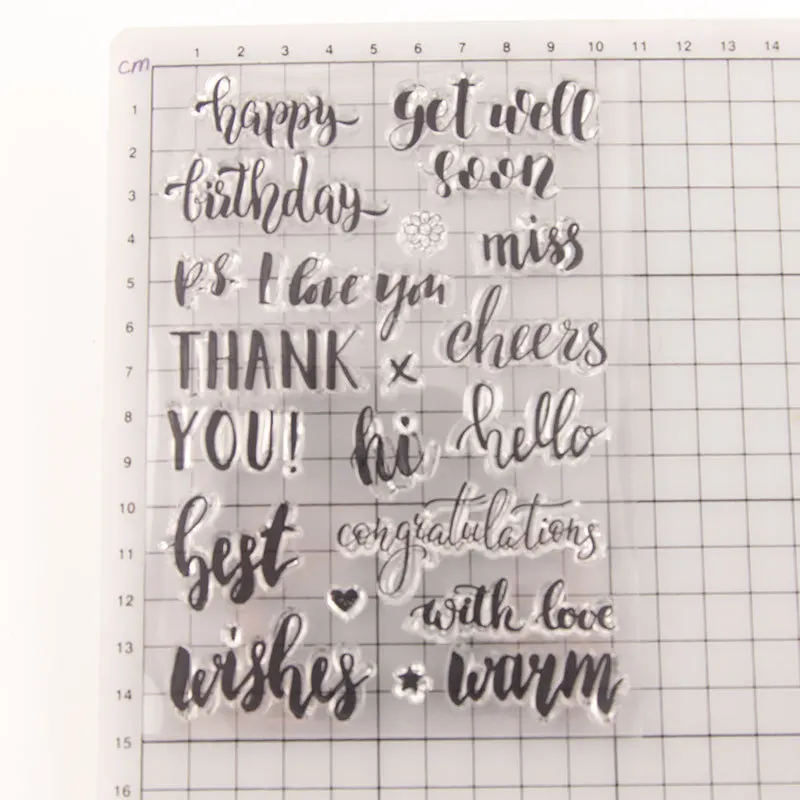 cm
1 2 3 4 5 6 7 8 9 10 11 12 13 14
1
2
3
4
5
6
7
8
9
10
11
12
13
14
15
16
happy
birthday
get well
soon
miss
p.s. I love you
THANK x
YOU!
cheers
hi
hello
best
congratulations
with love
wishes
warm